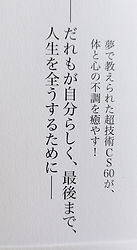 夢で教えられた超技術CS60が、
体と心の不調を癒やす!
──だれもが自分らしく、最後まで、
人生を全うするために──